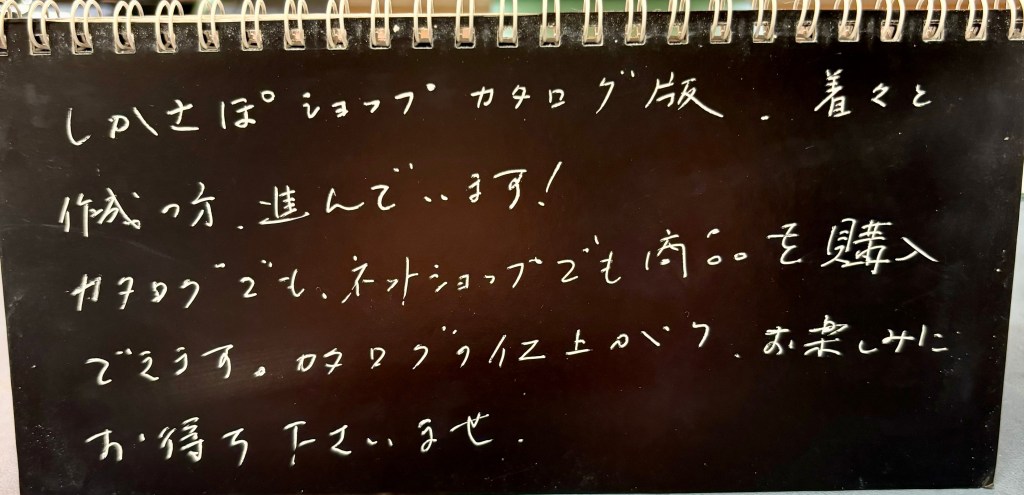 しかさぽショップカタログ版、着々と
作成の方、進んでいます!
カタログでも、ネットショップでも商品を購入
できます。カタログの仕上がり、お楽しみに
お待ち下さいませ.